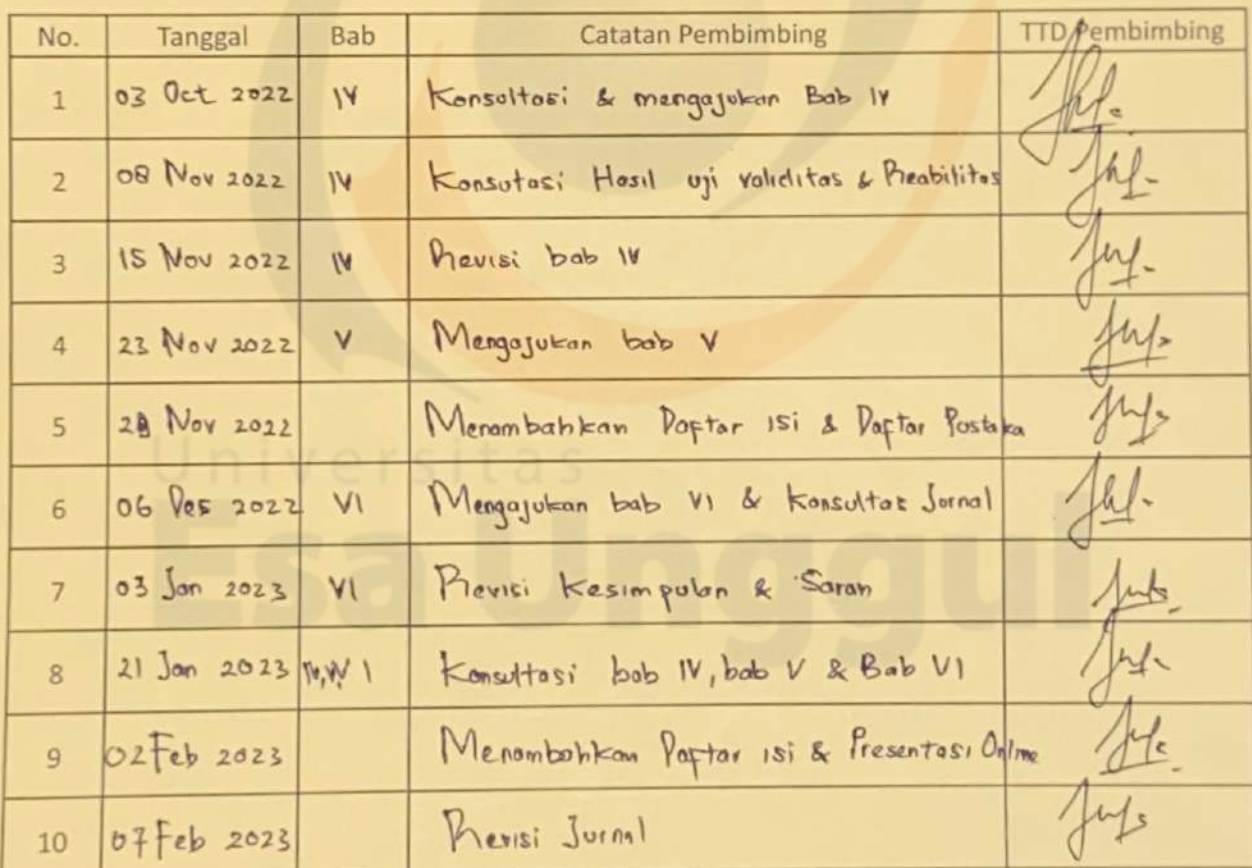 No. Tanggal Bab Catatan Pembimbing TTD Pembimbing
1 03 Oct 2022 IV Konsultasi & mengajukan Bab IV
2 08 Nov 2022 IV Konsutasi Hasil uji validitas & Reabilitas
3 15 Nov 2022 IV Revisi bab IV
4 23 Nov 2022 V Mengajukan bab V
5 28 Nov 2022 Menambahkan Daftar isi & Daftar Pustaka
6 06 Des 2022 VI Mengajukan bab VI & Konsultas Jornal
7 03 Jan 2023 VI Revisi Kesimpulan & Saran
8 21 Jan 2023 Konsultasi bab IV, bab V & Bab VI
9 02 Feb 2023 Menambahkan Daftar isi & Presentasi Online
10 07 Feb 2023 Revisi Jurnal
Universitas
Esa Unggul